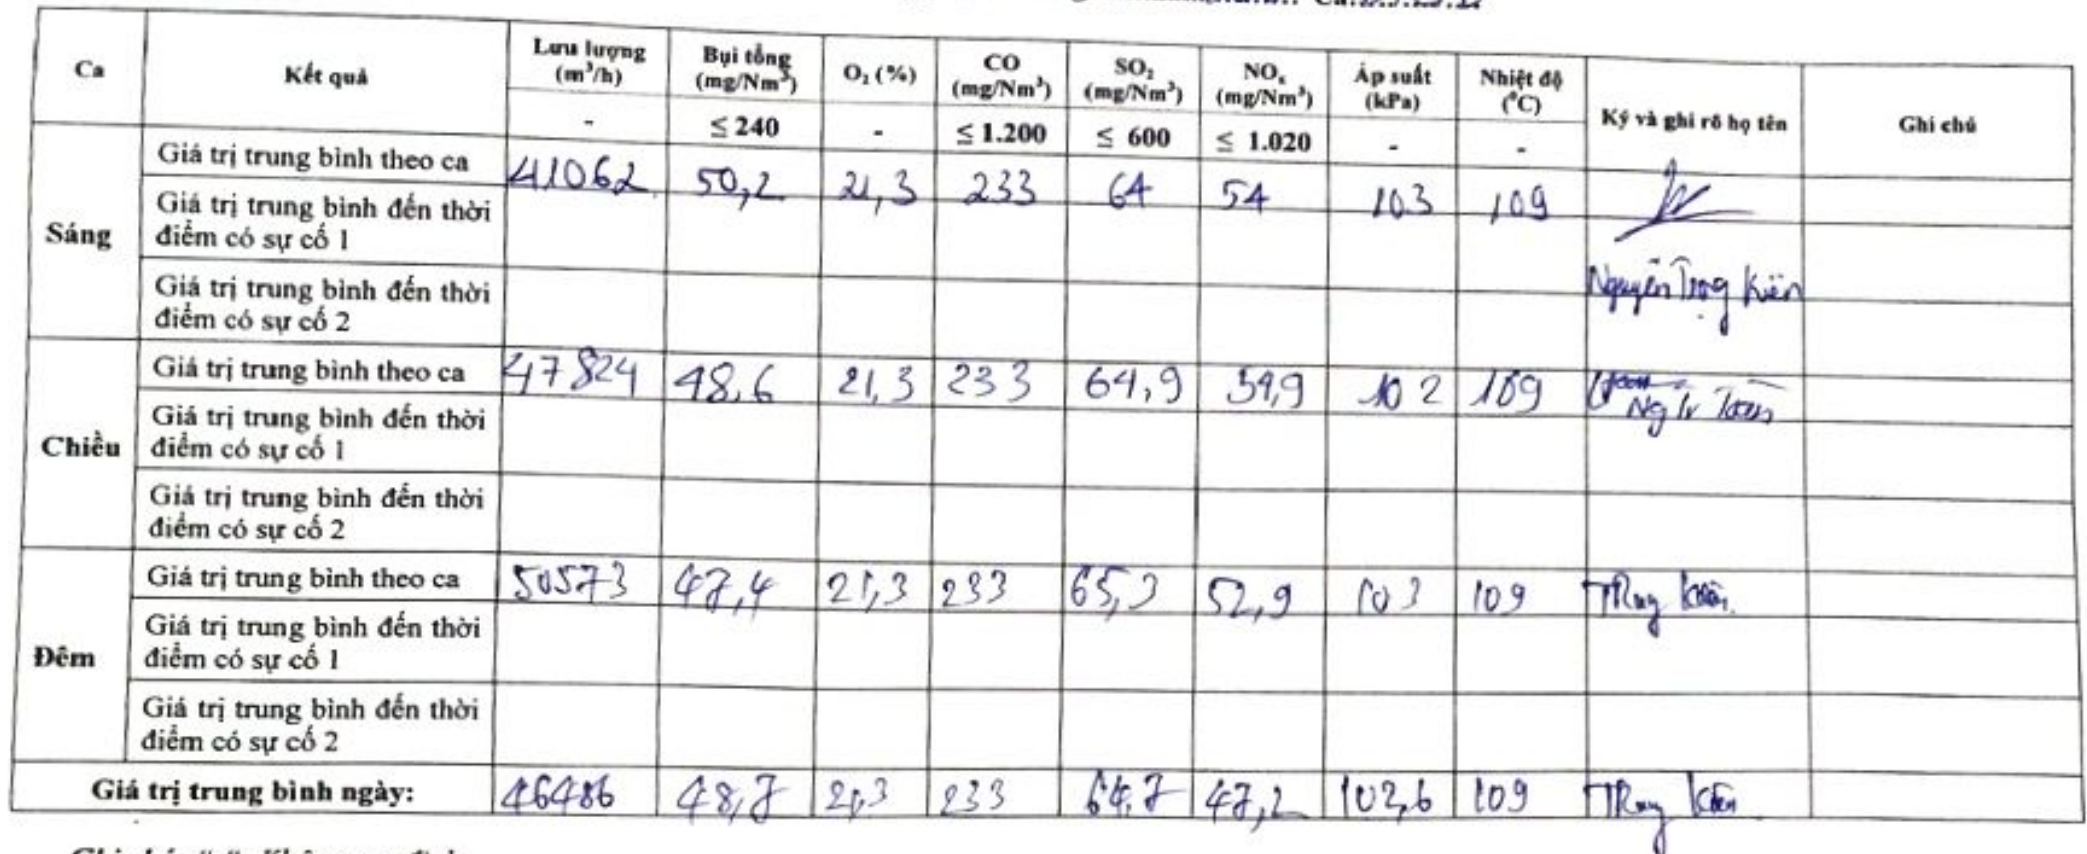 Ca Kết quả Lưu lượng (m³/h) Bụi tổng (mg/Nm³) O₂ (%) CO (mg/Nm³) SO₂ (mg/Nm³) NOₓ (mg/Nm³) Áp suất (kPa) Nhiệt độ (⁰C) Ký và ghi rõ họ tên Ghi chú
- ≤ 240 - ≤ 1.200 ≤ 600 ≤ 1.020 - -
Sáng
Giá trị trung bình theo ca 41062 50,2 21,3 233 64 54 103 109
Giá trị trung bình đến thời
điểm có sự cố 1
Nguyễn Trọng Kiên
Giá trị trung bình đến thời
điểm có sự cố 2
Chiều
Giá trị trung bình theo ca 47824 48,6 21,3 233 64,9 102 109
Giá trị trung bình đến thời
điểm có sự cố 1
Giá trị trung bình đến thời
điểm có sự cố 2
Đêm
Giá trị trung bình theo ca 50573 47,4 21,3 233 65,3 52,9 103 109
Giá trị trung bình đến thời
điểm có sự cố 1
Giá trị trung bình đến thời
điểm có sự cố 2
Giá trị trung bình ngày: 46486 48,7 21,3 233 64,7 47,2 102,6 109